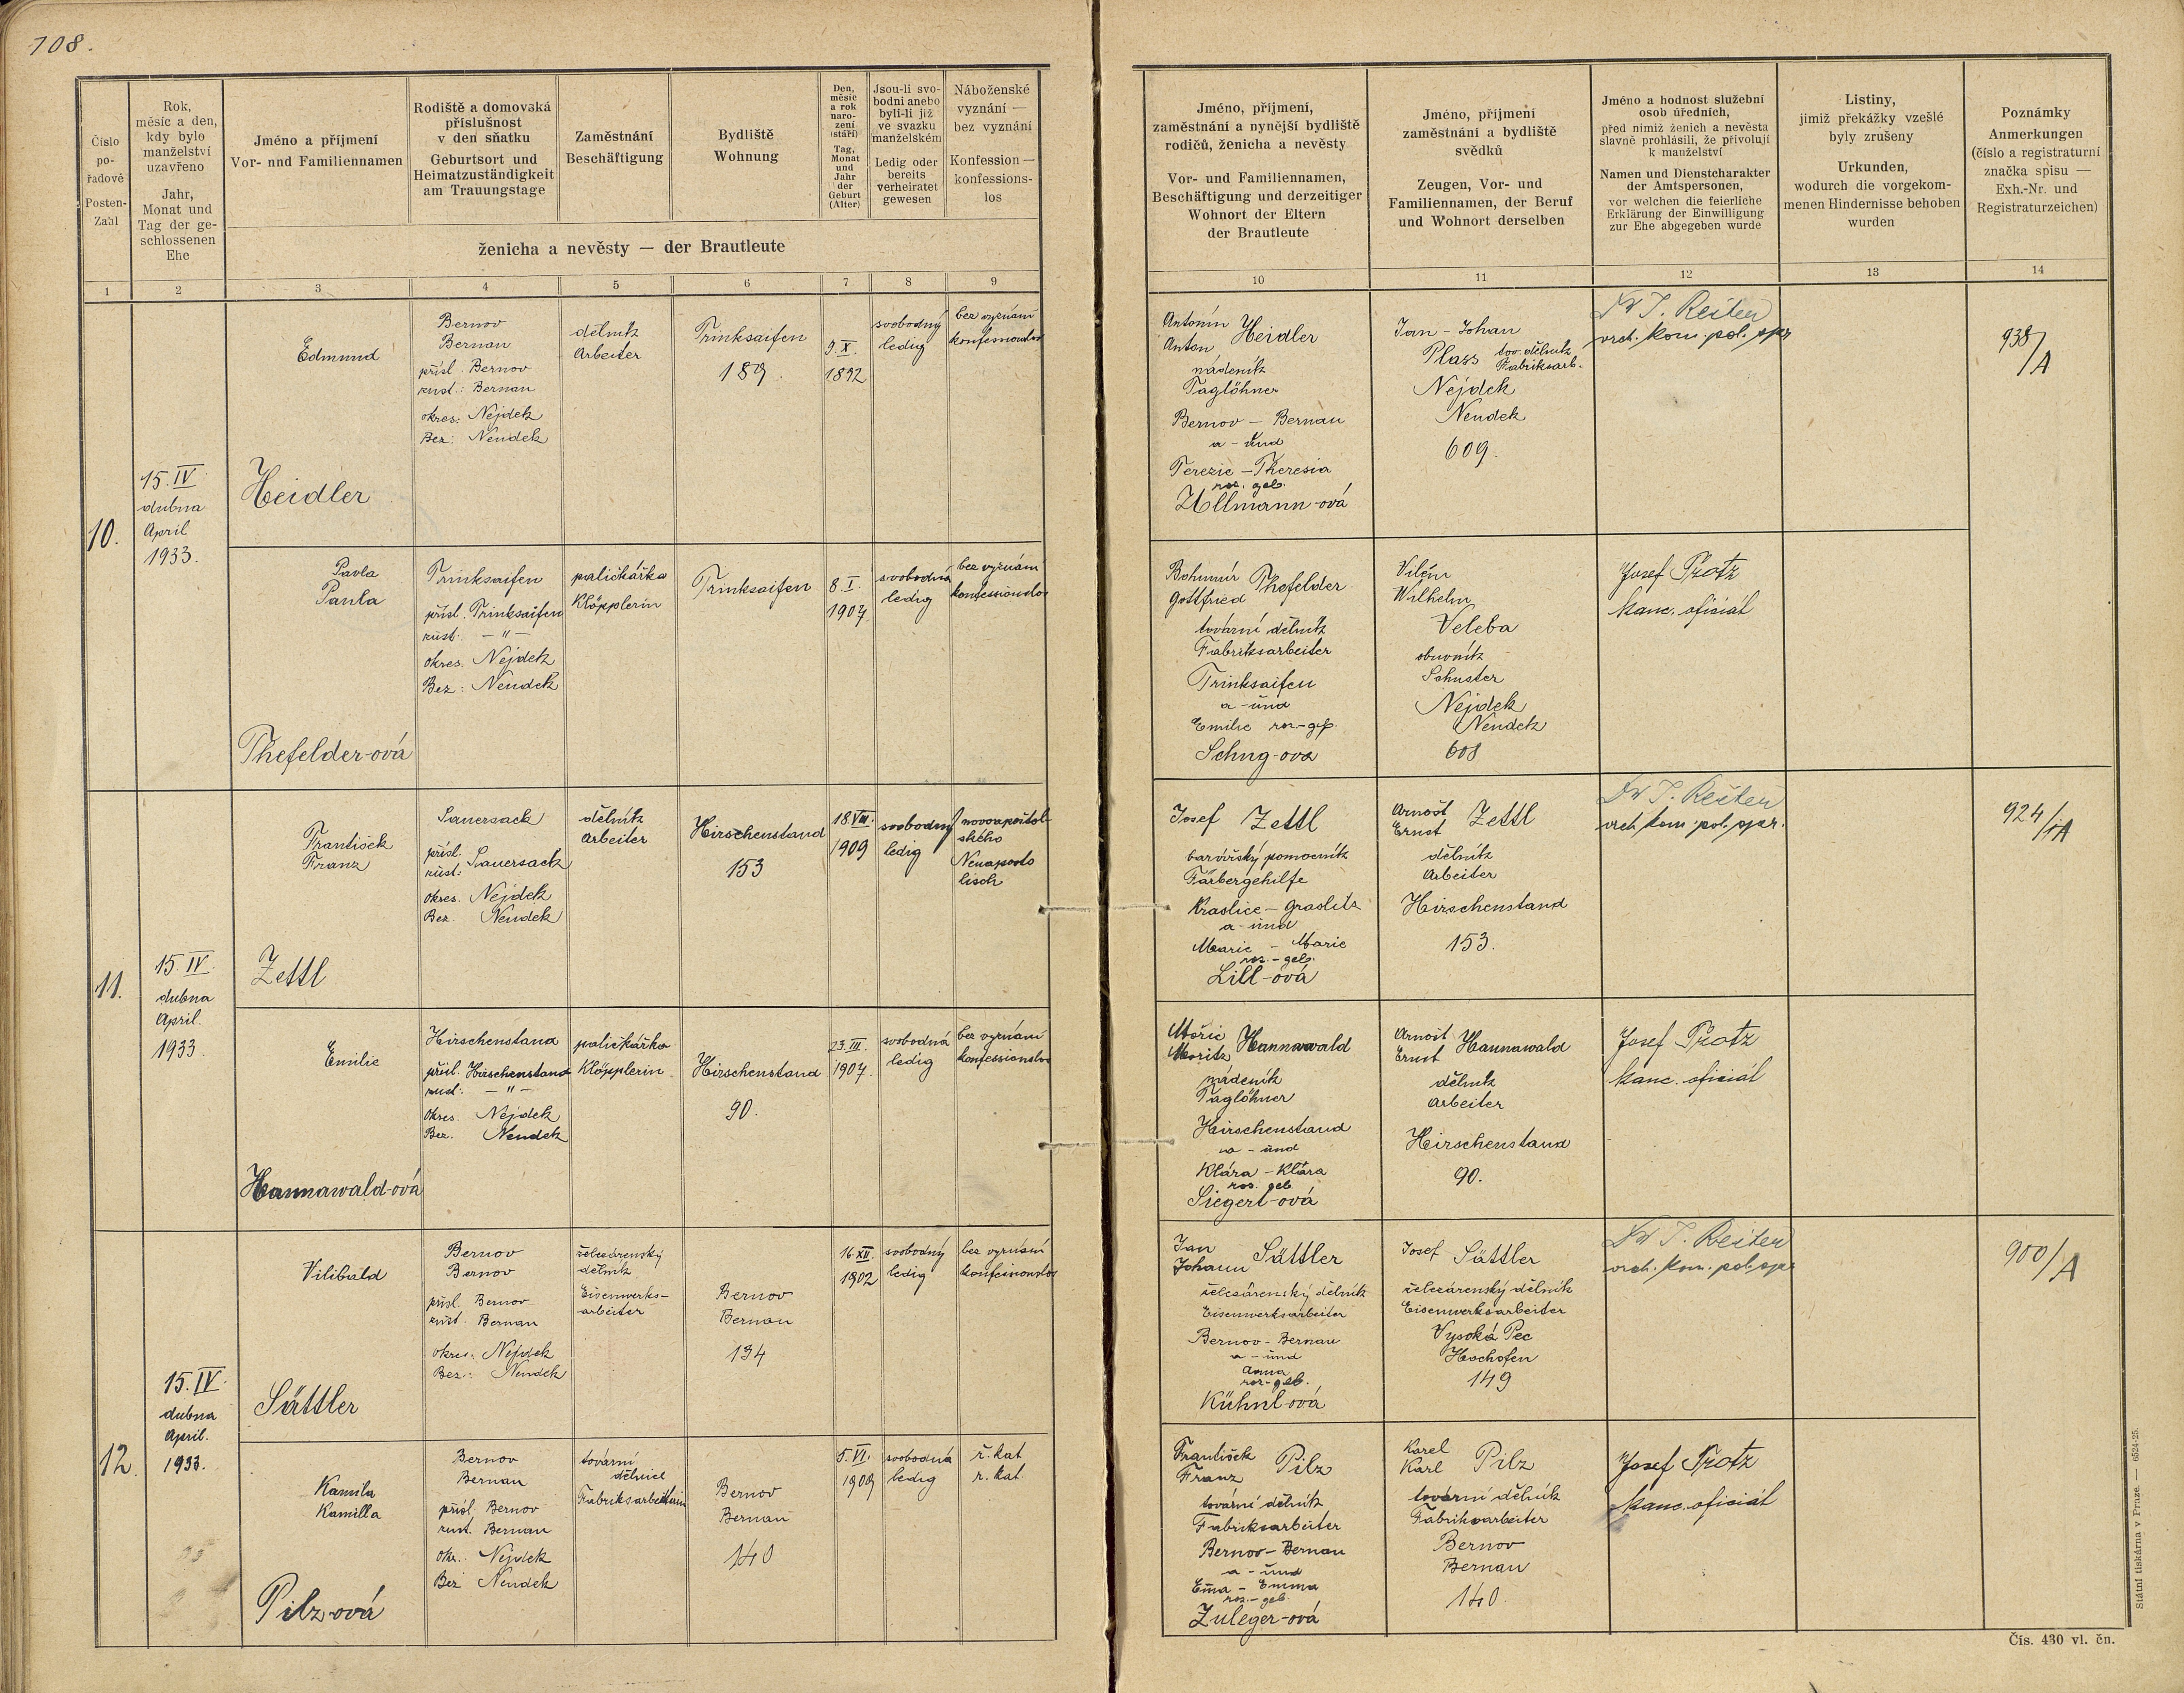 108.
Číslo
po-
řadové
Posten-
Zahl
Rok,
měsíc a den,
kdy bylo
manželství
uzavřeno
Jahr,
Monat und
Tag der ge-
schlossenen
Ehe
Jméno a příjmení
Vor- und Familiennamen
Rodiště a domovská
příslušnost
v den sňatku
Geburtsort und
Heimatzuständigkeit
am Trauungstage
Zaměstnání
Beschäftigung
Bydliště
Wohnung
Den,
měsíc
a rok
naro-
zení
(stáří)
Tag,
Monat
und
Jahr
der
Geburt
(Alter)
Jsou-li svo-
bodni anebo
byli-li již
ve svazku
manželském
Ledig oder
bereits
verheiratet
gewesen
Náboženské
vyznání —
bez vyznání
Konfession —
konfessions-
los
ženicha a nevěsty — der Brautleute
1 2 3 4 5 6 7 8 9
Jméno, příjmení,
zaměstnání a nynější bydliště
rodičů, ženicha a nevěsty
Vor- und Familiennamen,
Beschäftigung und derzeitiger
Wohnort der Eltern
der Brautleute
Jméno, příjmení
zaměstnání a bydliště
svědků
Zeugen, Vor- und
Familiennamen, der Beruf
und Wohnort derselben
Jméno a hodnost služební
osob úředních,
před nimiž ženich a nevěsta
slavně prohlásili, že přivolují
k manželství
Namen und Dienstcharakter
der Amtspersonen,
vor welchen die feierliche
Erklärung der Einwilligung
zur Ehe abgegeben wurde
Listiny,
jimiž překážky vzešlé
byly zrušeny
Urkunden,
wodurch die vorgekom-
menen Hindernisse behoben
wurden
Poznámky
Anmerkungen
(číslo a registraturní
značka spisu —
Exh.-Nr. und
Registraturzeichen)
10 11 12 13 14
10.
15. IV.
dubna
April
1933.
Edmund
Heidler
Bernov
Bernau
přísl. Bernov
zust.: Bernau
okres: Nejdek
Bez: Neudek
dělník
Arbeiter
Trinksaifen
189.
9. X.
1892
svobodný
ledig
bez vyznání
konfessionslos
Antonín
Anton Heidler
nádeník
Taglöhner
Bernov – Bernau
a – und
Terezie – Theresia
roz. geb.
Ullmann-ová
Jan – Johan
Plass tov. dělník
Fabriksarb.
Nejdek
Neudek
609.
Dr J. Reiten
vrch. kom. pol. spr.
938/A
Pavla
Paula
Thefelder-ová
Trinksaifen
přísl. Trinksaifen
zust. – " –
okres. Nejdek
Bez: Neudek
paličkářka
Klöpplerin
Trinksaifen
8. I.
1907.
svobodná
ledig
bez vyznání
konfessionslos
Bohumír
Gottfried Thefelder
tovární dělník
Fabriksarbeiter
Trinksaifen
a – und
Emilie roz.– geb.
Schug-ova
Vilém
Wilhelm
Veleba
obuvník
Schuster
Nejdek
Neudek
608
Josef Protz
kanc. oficiál
11.
15. IV.
dubna
April.
1933.
František
Franz
Zettl
Sauersack
přísl.
zust: Sauersack
okres. Nejdek
Bez. Neudek
dělník
Arbeiter
Hirschenstand
153
18. VIII.
1909
svobodný
ledig
novoapoštol-
ského
Neuaposto
lisch
Josef Zettl
barvířský pomocník
Färbergehilfe
Kraslice – Graslitz
a – und
Marie – Marie
roz. – geb.
Lill-ová
Arnošt
Ernst Zettl
dělník
Arbeiter
Hirschenstand
153.
Dr J. Reiten
vrch. kom. pol. spr.
924/A
Emilie
Hannawald-ová
Hirschenstand
přísl. Hirschenstand
zust: – " –
okres. Nejdek
Bez. Neudek
paličkářka
Klöpplerin
Hirschenstand
90.
23. III.
1907.
svobodná
ledig
bez vyznání
konfessionslos
Mořic
Moritz Hannawald
nádeník
Taglöhner
Hirschenstand
a – und
Klára – Klára
roz. geb.
Siegert-ová
Arnošt
Ernst Hannawald
dělník
Arbeiter
Hirschenstand
90.
Josef Protz
kanc. oficiál
12.
15. IV.
dubna
April.
1933.
Vilibald
Sättler
Bernov
Bernov
přísl. Bernov
zust. Bernau
okres: Nejdek
Bez: Neudek
železárenský
dělník
Eisenwerks-
arbeiter
Bernov
Bernau
134
16. XII.
1902
svobodný
ledig
bez vyznání
konfessionslos
Jan
Johann Sättler
železárenský dělník
Eisenwerksarbeiter
Bernov – Bernau
a – und
Anna
roz – geb.
Kühnl-ová
Josef Sättler
železárenský dělník
Eisenwerksarbeiter
Vysoká Pec
Hochofen
149
Dr J. Reiten
vrch. kom. pol. spr.
900/A
Kamila
Kamilla
Pilz-ová
Bernov
Bernau
přísl. Bernov
zust. Bernau
okr. Nejdek
Bez Neudek
tovární
dělnice
Fabriksarbeiterin
Bernov
Bernau
140
5. VI.
1909
svobodná
ledig
ř. kat
r. kat.
František
Franz Pilz
tovární dělník
Fabriksarbeiter
Bernov – Bernau
a – und
Ema – Emma
roz. – geb.
Zuleger-ová
Karel
Karl Pilz
tovární dělník
Fabriksarbeiter
Bernov
Bernau
140.
Josef Protz
kanc. oficiál
Státní tiskárna v Praze. — 6524-25.
Čís. 430 vl. čn.